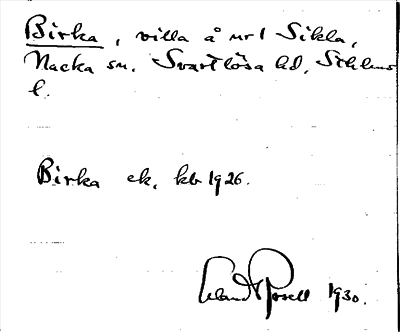 Birka, villa å nr 1 Sikla,
Nacka sn. Svartlösa hd, Sthlms
l.
Birka ek. kb 1926.
1930.